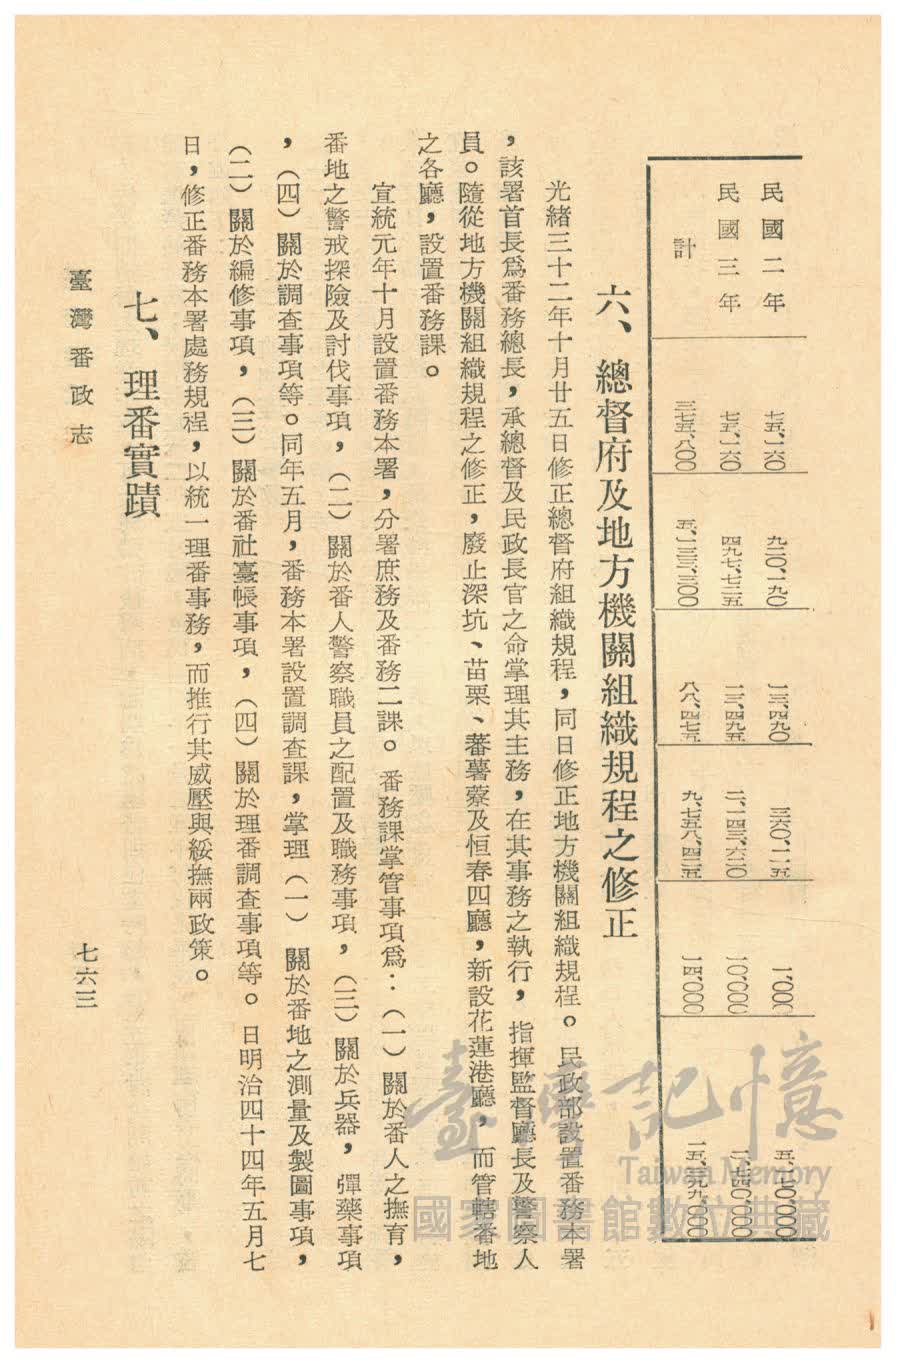 民國二年　七五、一六〇　九二〇、一九〇　一三、四九〇　三六〇、二一五　一、〇〇〇
民國三年　七五、一六〇　四九七、七二五　一三、四九五　二、一四三、六二〇　一〇、〇〇〇
計　三七五、八〇〇　五、一三三、三〇〇　八八、四七五　九、七五八、四二五　一四、〇〇〇
六、總督府及地方機關組織規程之修正
光緒三十二年十月廿五日修正總督府組織規程，同日修正地方機關組織規程。民政部設置番務本署
，該署首長爲番務總長，承總督及民政長官之命掌理其主務，在其事務之執行，指揮監督廳長及警察人
員。隨從地方機關組織規程之修正，廢止深坑、苗栗、蕃薯藔及恒春四廳，新設花蓮港廳，而管轄番地
之各廳，設置番務課。
宣統元年十月設置番務本署，分署庶務及番務二課。番務課掌管事項爲：（一）關於番人之撫育，
番地之警戒探險及討伐事項，（二）關於番人警察職員之配置及職務事項，（三）關於兵器，彈藥事項
，（四）關於調查事項等。同年五月，番務本署設置調查課，掌理（一）關於番地之測量及製圖事項，
（二）關於編修事項，（三）關於番社臺帳事項，（四）關於理番調查事項等。日明治四十四年五月七
日，修正番務本署處務規程，以統一理番事務，而推行其威壓與綏撫兩政策。
七、理番實蹟
臺灣番政志
七六三
臺灣記憶
Taiwan Memory
國家圖書館數位典藏